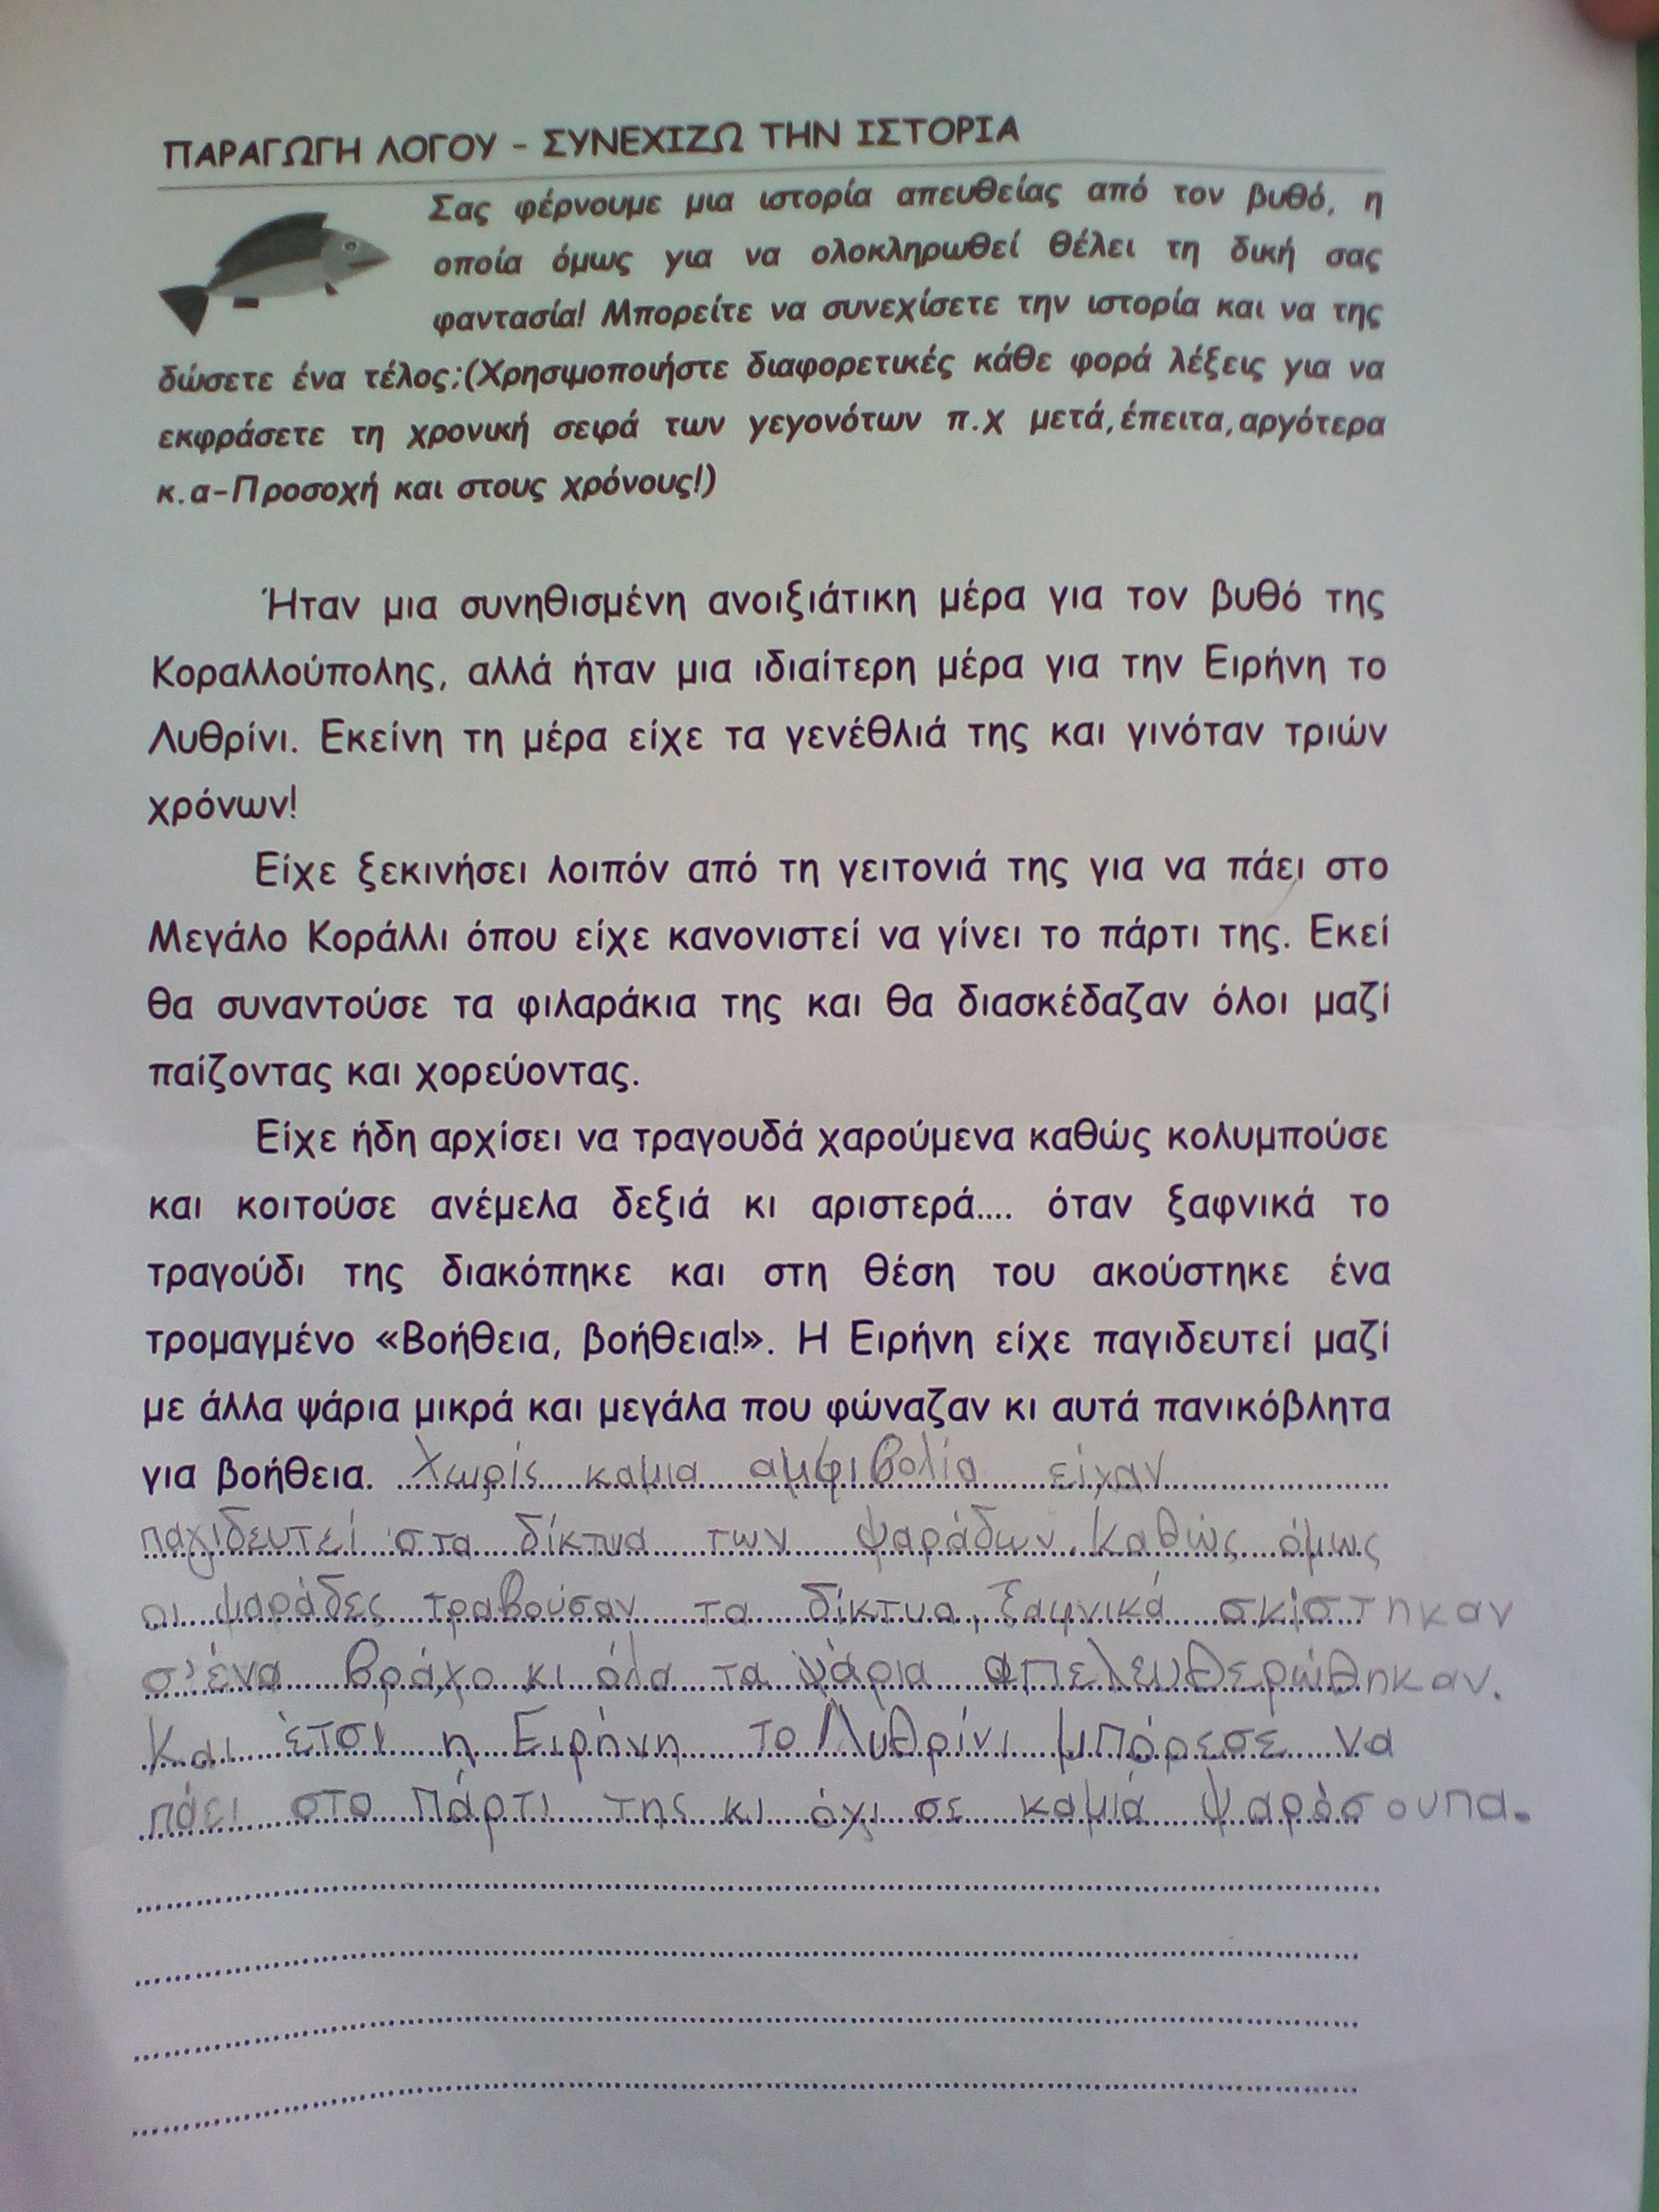 ΠΑΡΑΓΩΓΗ ΛΟΓΟΥ - ΣΥΝΕΧΙΖΩ ΤΗΝ ΙΣΤΟΡΙΑ
Σας φέρνουμε μια ιστορία απευθείας από τον βυθό, η
οποία όμως για να ολοκληρωθεί θέλει τη δική σας
φαντασία! Μπορείτε να συνεχίσετε την ιστορία και να της
δώσετε ένα τέλος;(Χρησιμοποιήστε διαφορετικές κάθε φορά λέξεις για να
εκφράσετε τη χρονική σειρά των γεγονότων π.χ μετά,έπειτα,αργότερα
κ.α-Προσοχή και στους χρόνους!)
Ήταν μια συνηθισμένη ανοιξιάτικη μέρα για τον βυθό της
Κοραλλούπολης, αλλά ήταν μια ιδιαίτερη μέρα για την Ειρήνη το
Λυθρίνι. Εκείνη τη μέρα είχε τα γενέθλιά της και γινόταν τριών
χρόνων!
Είχε ξεκινήσει λοιπόν από τη γειτονιά της για να πάει στο
Μεγάλο Κοράλλι όπου είχε κανονιστεί να γίνει το πάρτι της. Εκεί
θα συναντούσε τα φιλαράκια της και θα διασκέδαζαν όλοι μαζί
παίζοντας και χορεύοντας.
Είχε ήδη αρχίσει να τραγουδά χαρούμενα καθώς κολυμπούσε
και κοιτούσε ανέμελα δεξιά κι αριστερά.... όταν ξαφνικά το
τραγούδι της διακόπηκε και στη θέση του ακούστηκε ένα
τρομαγμένο «Βοήθεια, βοήθεια!». Η Ειρήνη είχε παγιδευτεί μαζί
με άλλα ψάρια μικρά και μεγάλα που φώναζαν κι αυτά πανικόβλητα
για βοήθεια. Χωρίς καμια αμφιβολία είχαν
παγιδευτεί στα δίκτυα των ψαράδων. Καθώς όμως
οι ψαράδες τραβούσαν τα δίκτυα, ξαφνικά σκίστηκαν
σ' ένα βράχο κι όλα τα ψάρια απελευθερώθηκαν.
Και έτσι η Ειρήνη το Λυθρίνι μπόρεσε να
πάει στο πάρτι της κι όχι σε καμιά ψαρόσουπα.